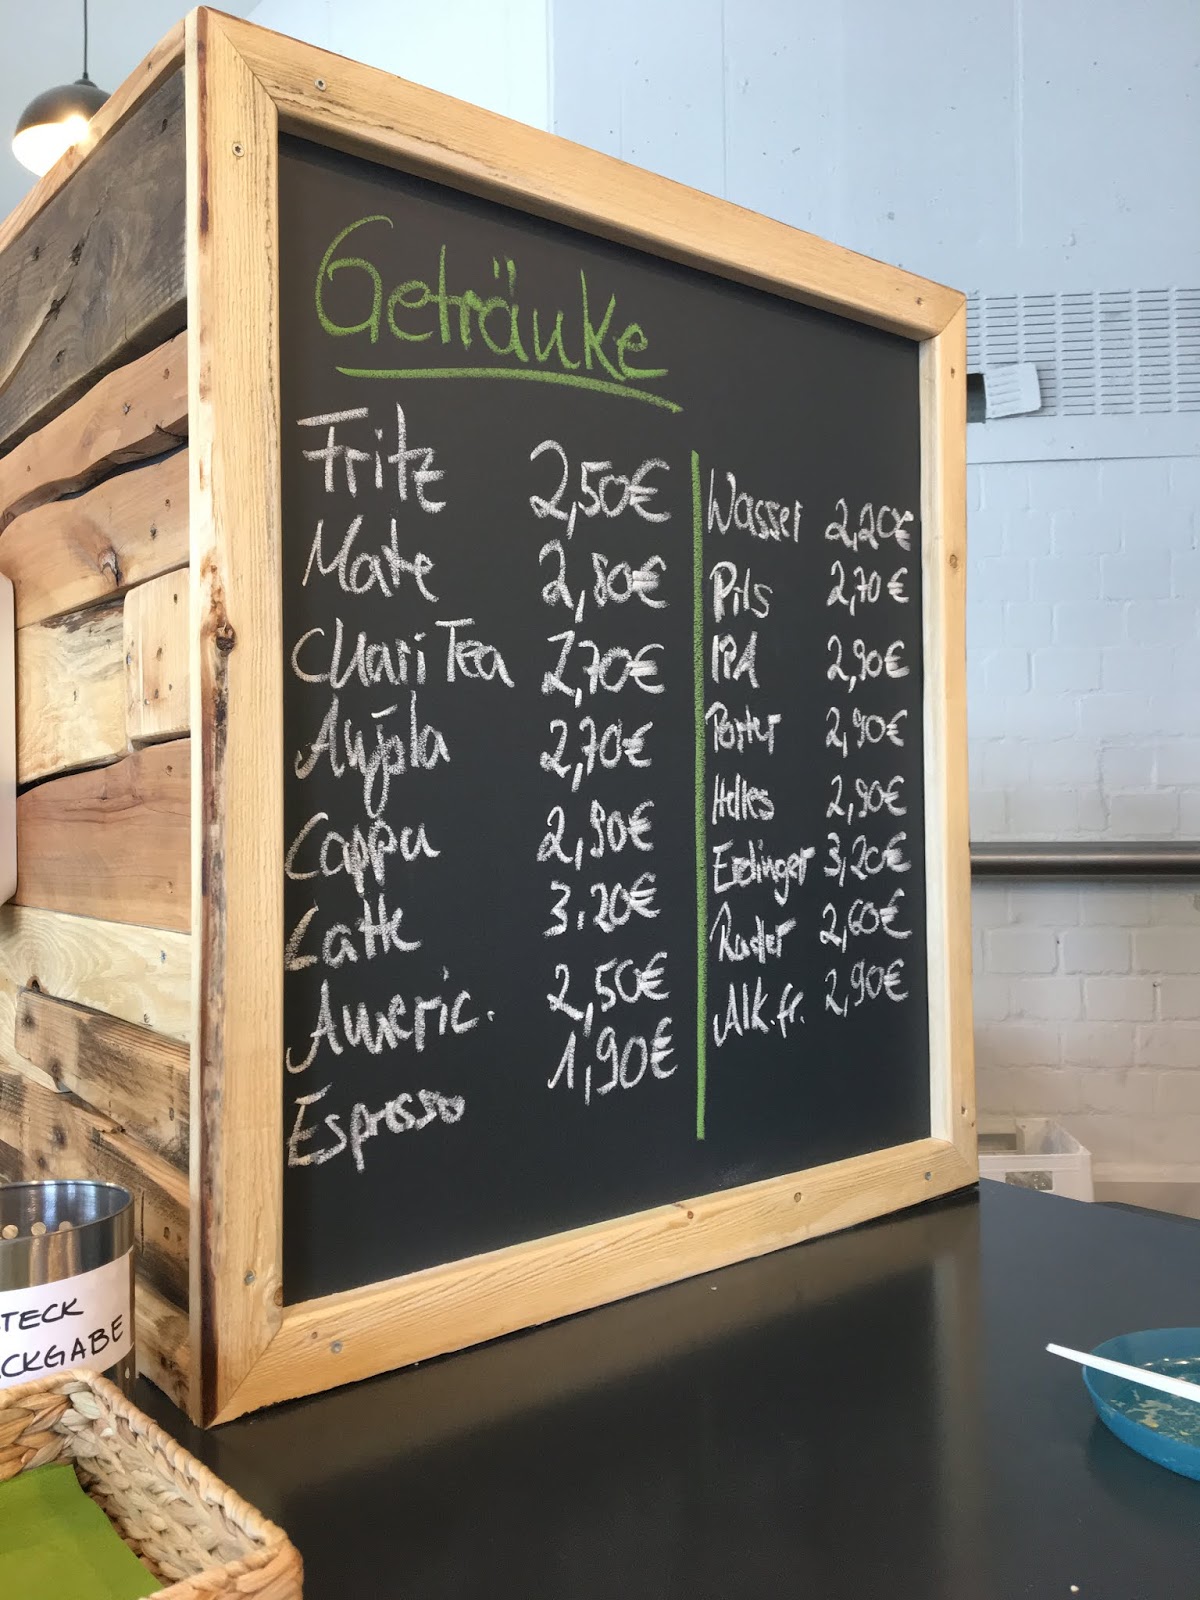 Getränke
Fritz 2,50€
Mate 2,80€
ChariTea 2,70€
2,70€
Cappu 2,90€
Latte 3.20€
Americ. 2,50€
Espresso 1,90€
Wasser 2,20€
Pils 2,70€
IPA 2,90€
Porter 2,90€
Helles 2,90€
Erdinger 3,20€
Radler 2,60€
Alk.fr. 2,90€
TECK
CKGABE